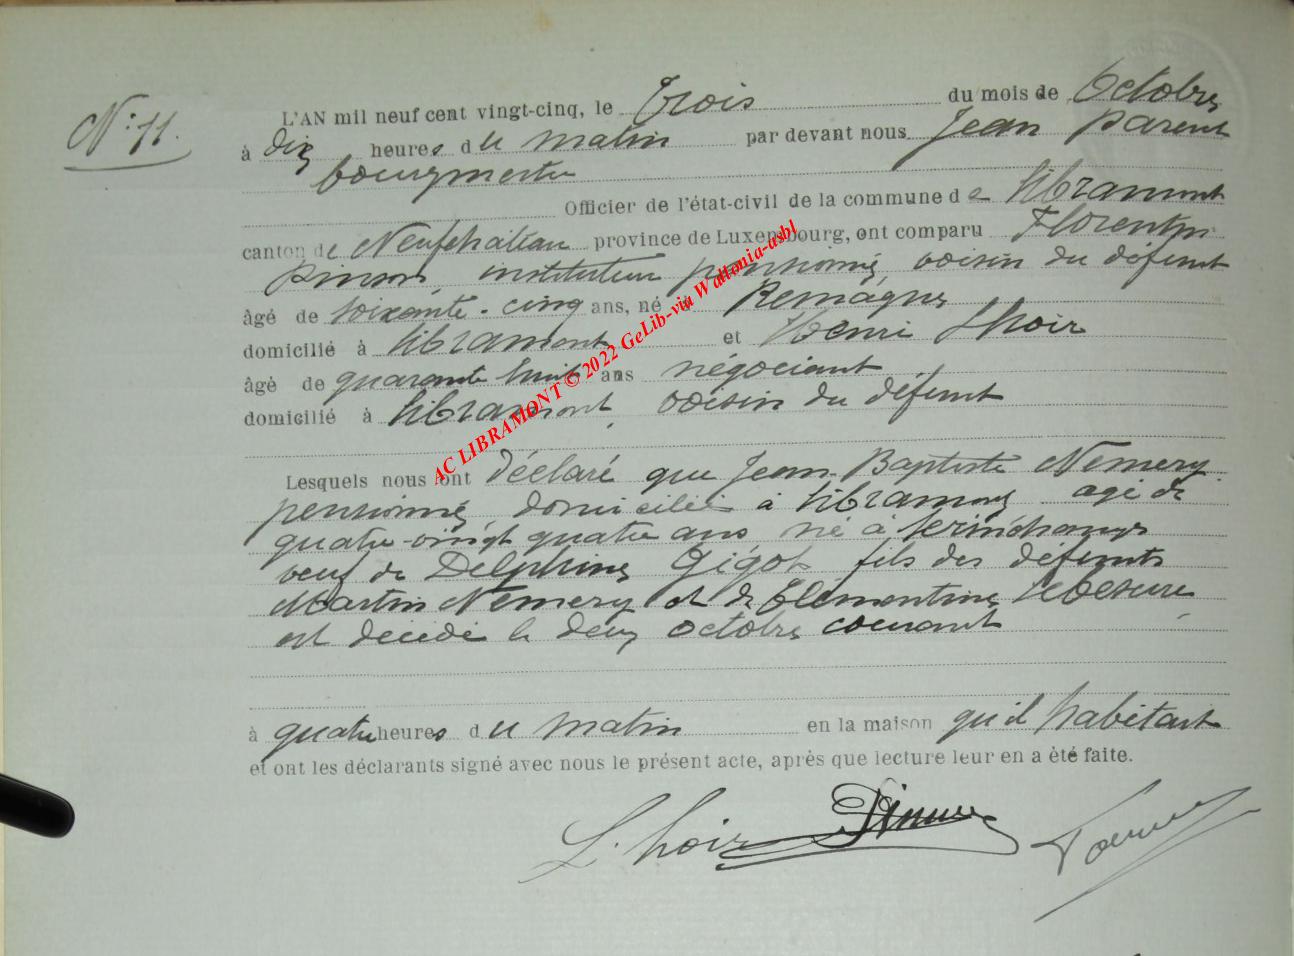 N° 11.
L'AN mil neuf cent vingt-cinq, le Trois du mois de Octobre
à dix heures du matin par devant nous Jean Parent
bourgmestre
Officier de l'état-civil de la commune de Libramont
canton de Neufchâteau province de Luxembourg, ont comparu Florentin
Pinson, instituteur pensionné, voisin du défunt
âgé de soixante-cinq ans, né à Remagne
domicilié à Libramont et Henri Lhoir
âgé de quarante huit ans négociant
domicilié à Libramont, voisin du défunt
Lesquels nous ont déclaré que Jean-Baptiste Nemery
pensionné, domicilié à Libramont agé de
quatre-vingt quatre ans né à
veuf de Delphine Gigot fils des défunts
Martin Nemery et de Clémentine
est décédé le deux octobre courant
à quatre heures du matin en la maison qu'il habitait
et ont les déclarants signé avec nous le présent acte, après que lecture leur en a été faite.
L'hoir
AC LIBRAMONT © 2022 GeLib-via Wallonia-asbl